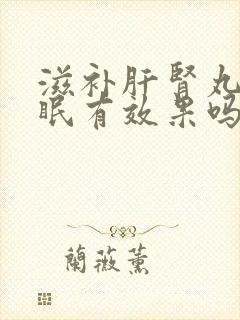 滋补肝肾丸
眠有效果吗
蘭薇薰